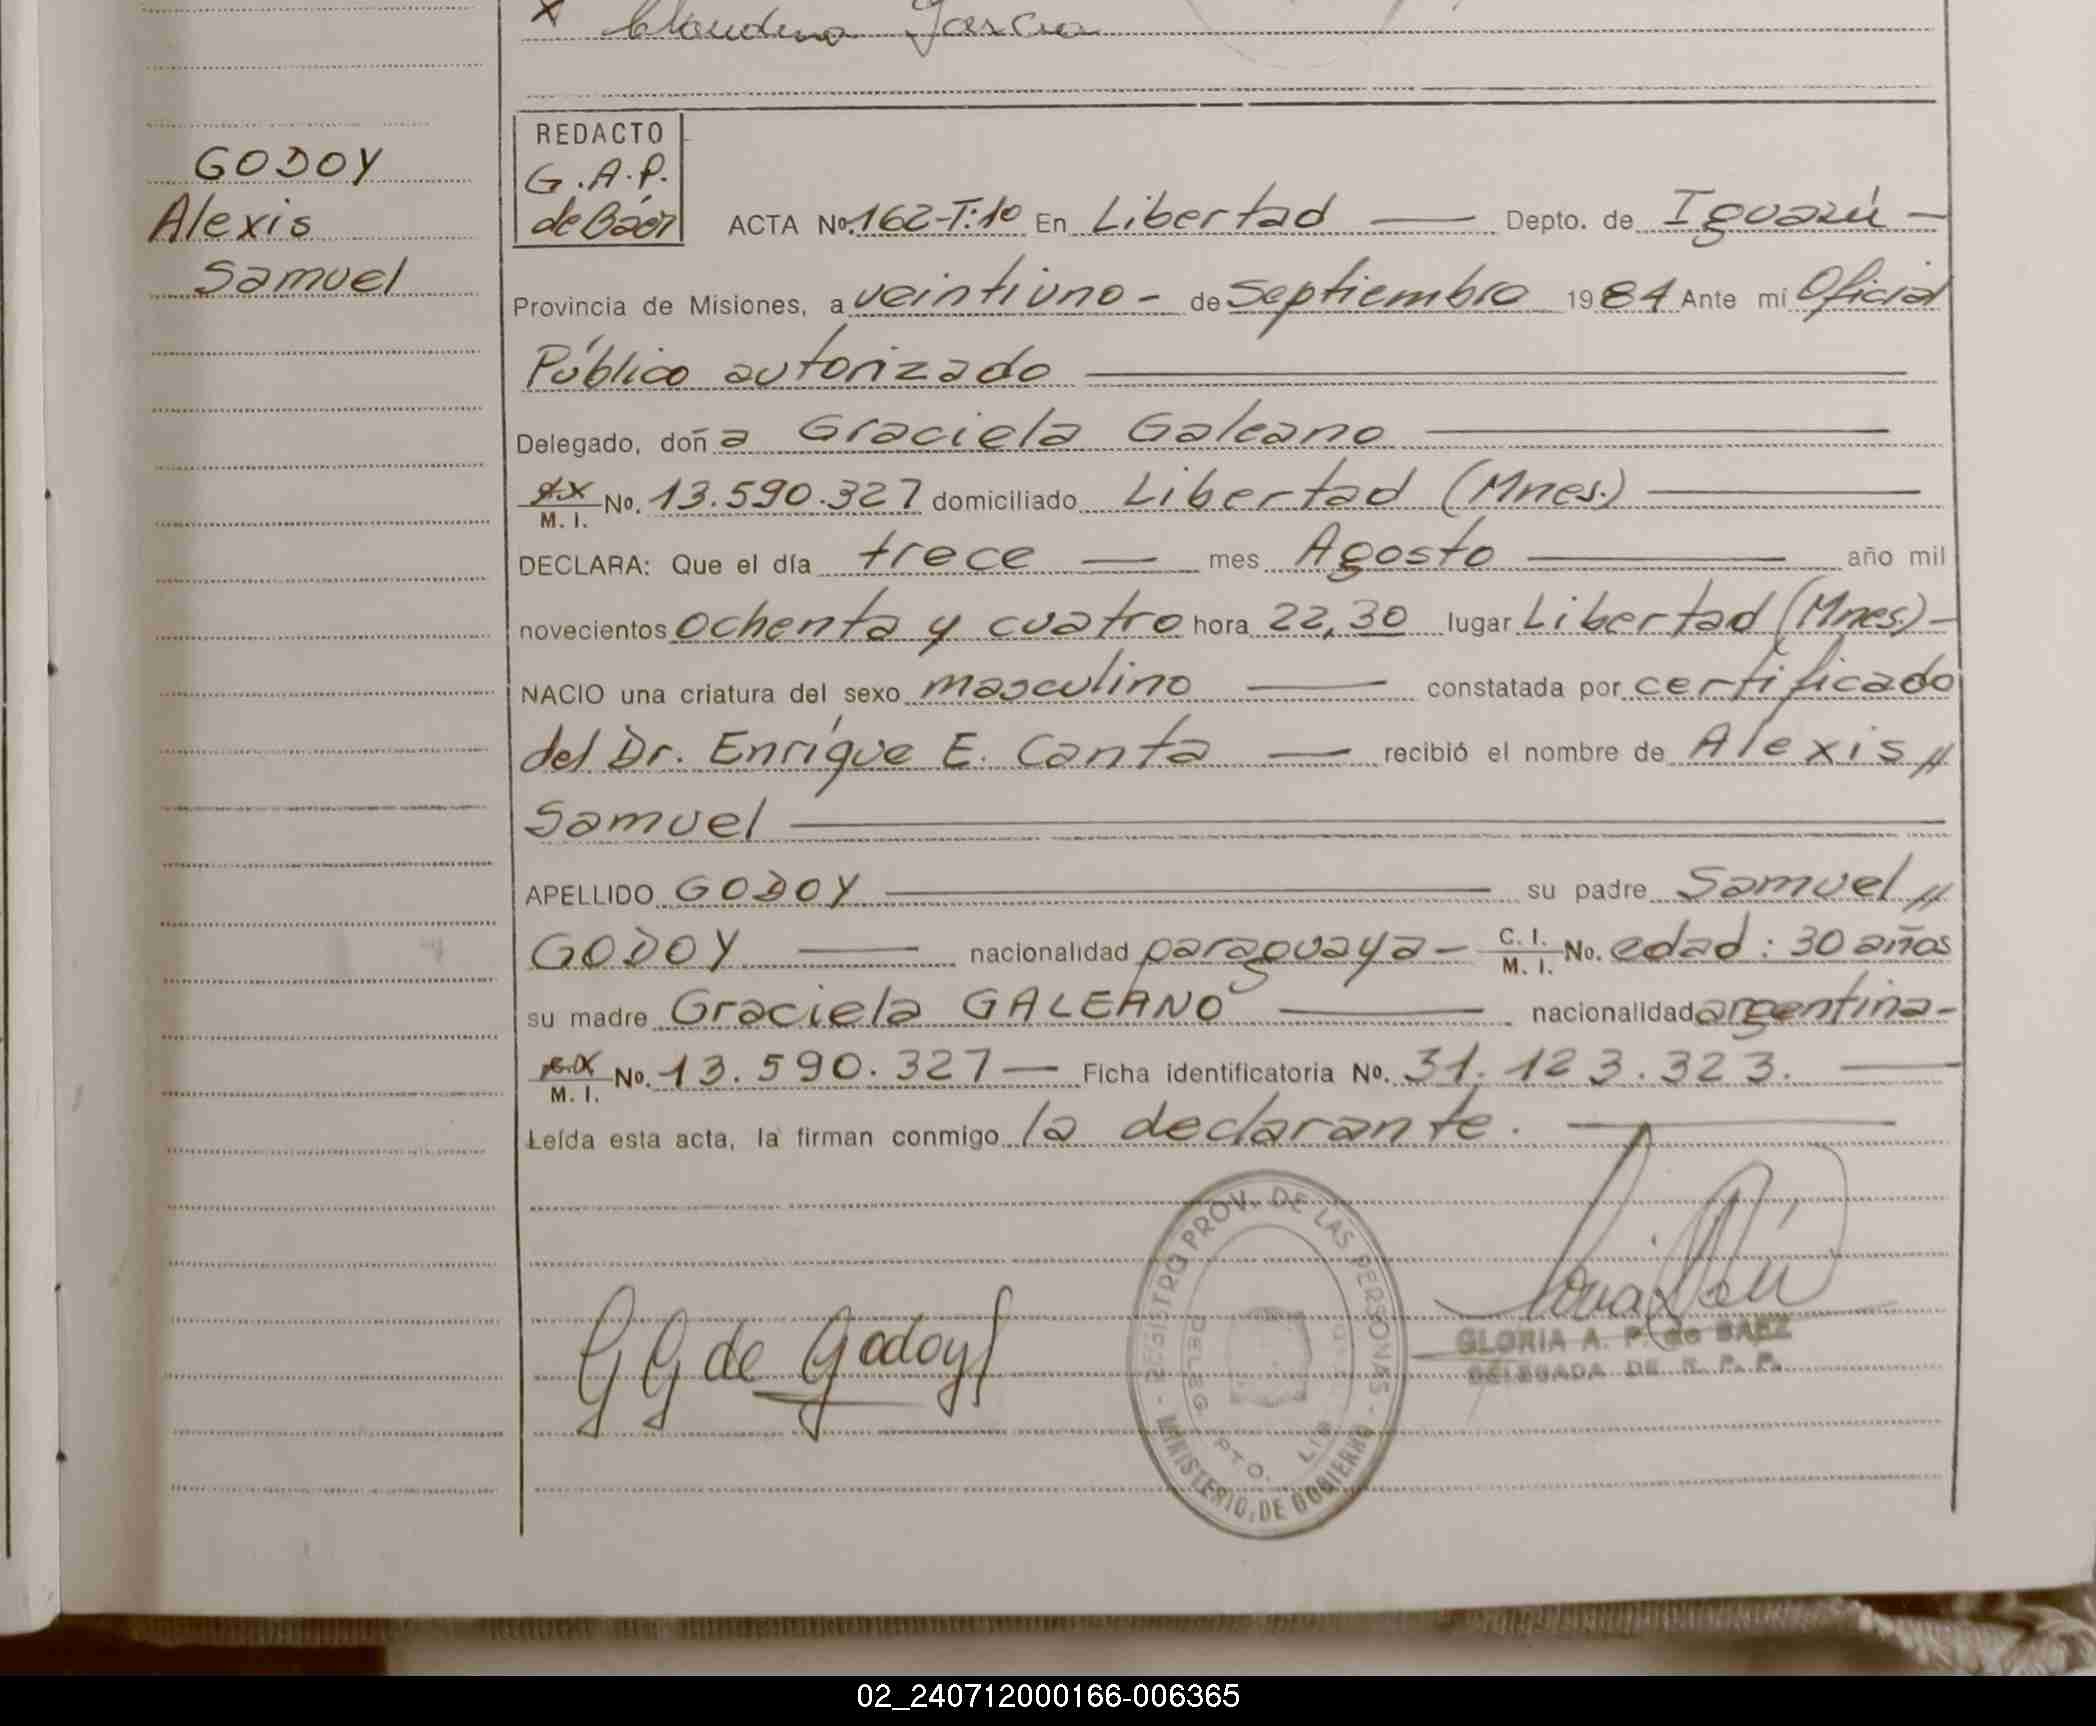 x Claudina Garcia
GODOY
Alexis
Samuel
REDACTO
G.A.P.
de Báez
ACTA No. 162-T:10 En Libertad — Depto. de Iguazú —
Provincia de Misiones, a veintiuno - de Septiembre 1984 Ante mí Oficial
Público autorizado
Delegado, doña Graciela Galeano
M. I. No. 13.590.327 domiciliado Libertad (Mnes.)
DECLARA: Que el día trece — mes Agosto — año mil
novecientos ochenta y cuatro hora 22,30 lugar Libertad (Mnes.) -
NACIO una criatura del sexo masculino — constatada por certificado
del Dr. Enrique E. Canta — recibió el nombre de Alexis //
Samuel
APELLIDO GODOY — su padre Samuel //
GODOY — nacionalidad paraguaya - C. I. M. I. No. edad: 30 años
su madre Graciela GALEANO — nacionalidad argentina -
M. I. No. 13.590.327 — Ficha identificatoria No. 31.123.323. —
Leída esta acta, la firman conmigo la declarante. —
G G de Godoy
REGISTRO PROV. DE LAS PERSONAS - MINISTERIO DE GOBIERNO -
GLORIA A. P. de BAEZ
DELEGADA DE R. P. P.
02_240712000166-006365